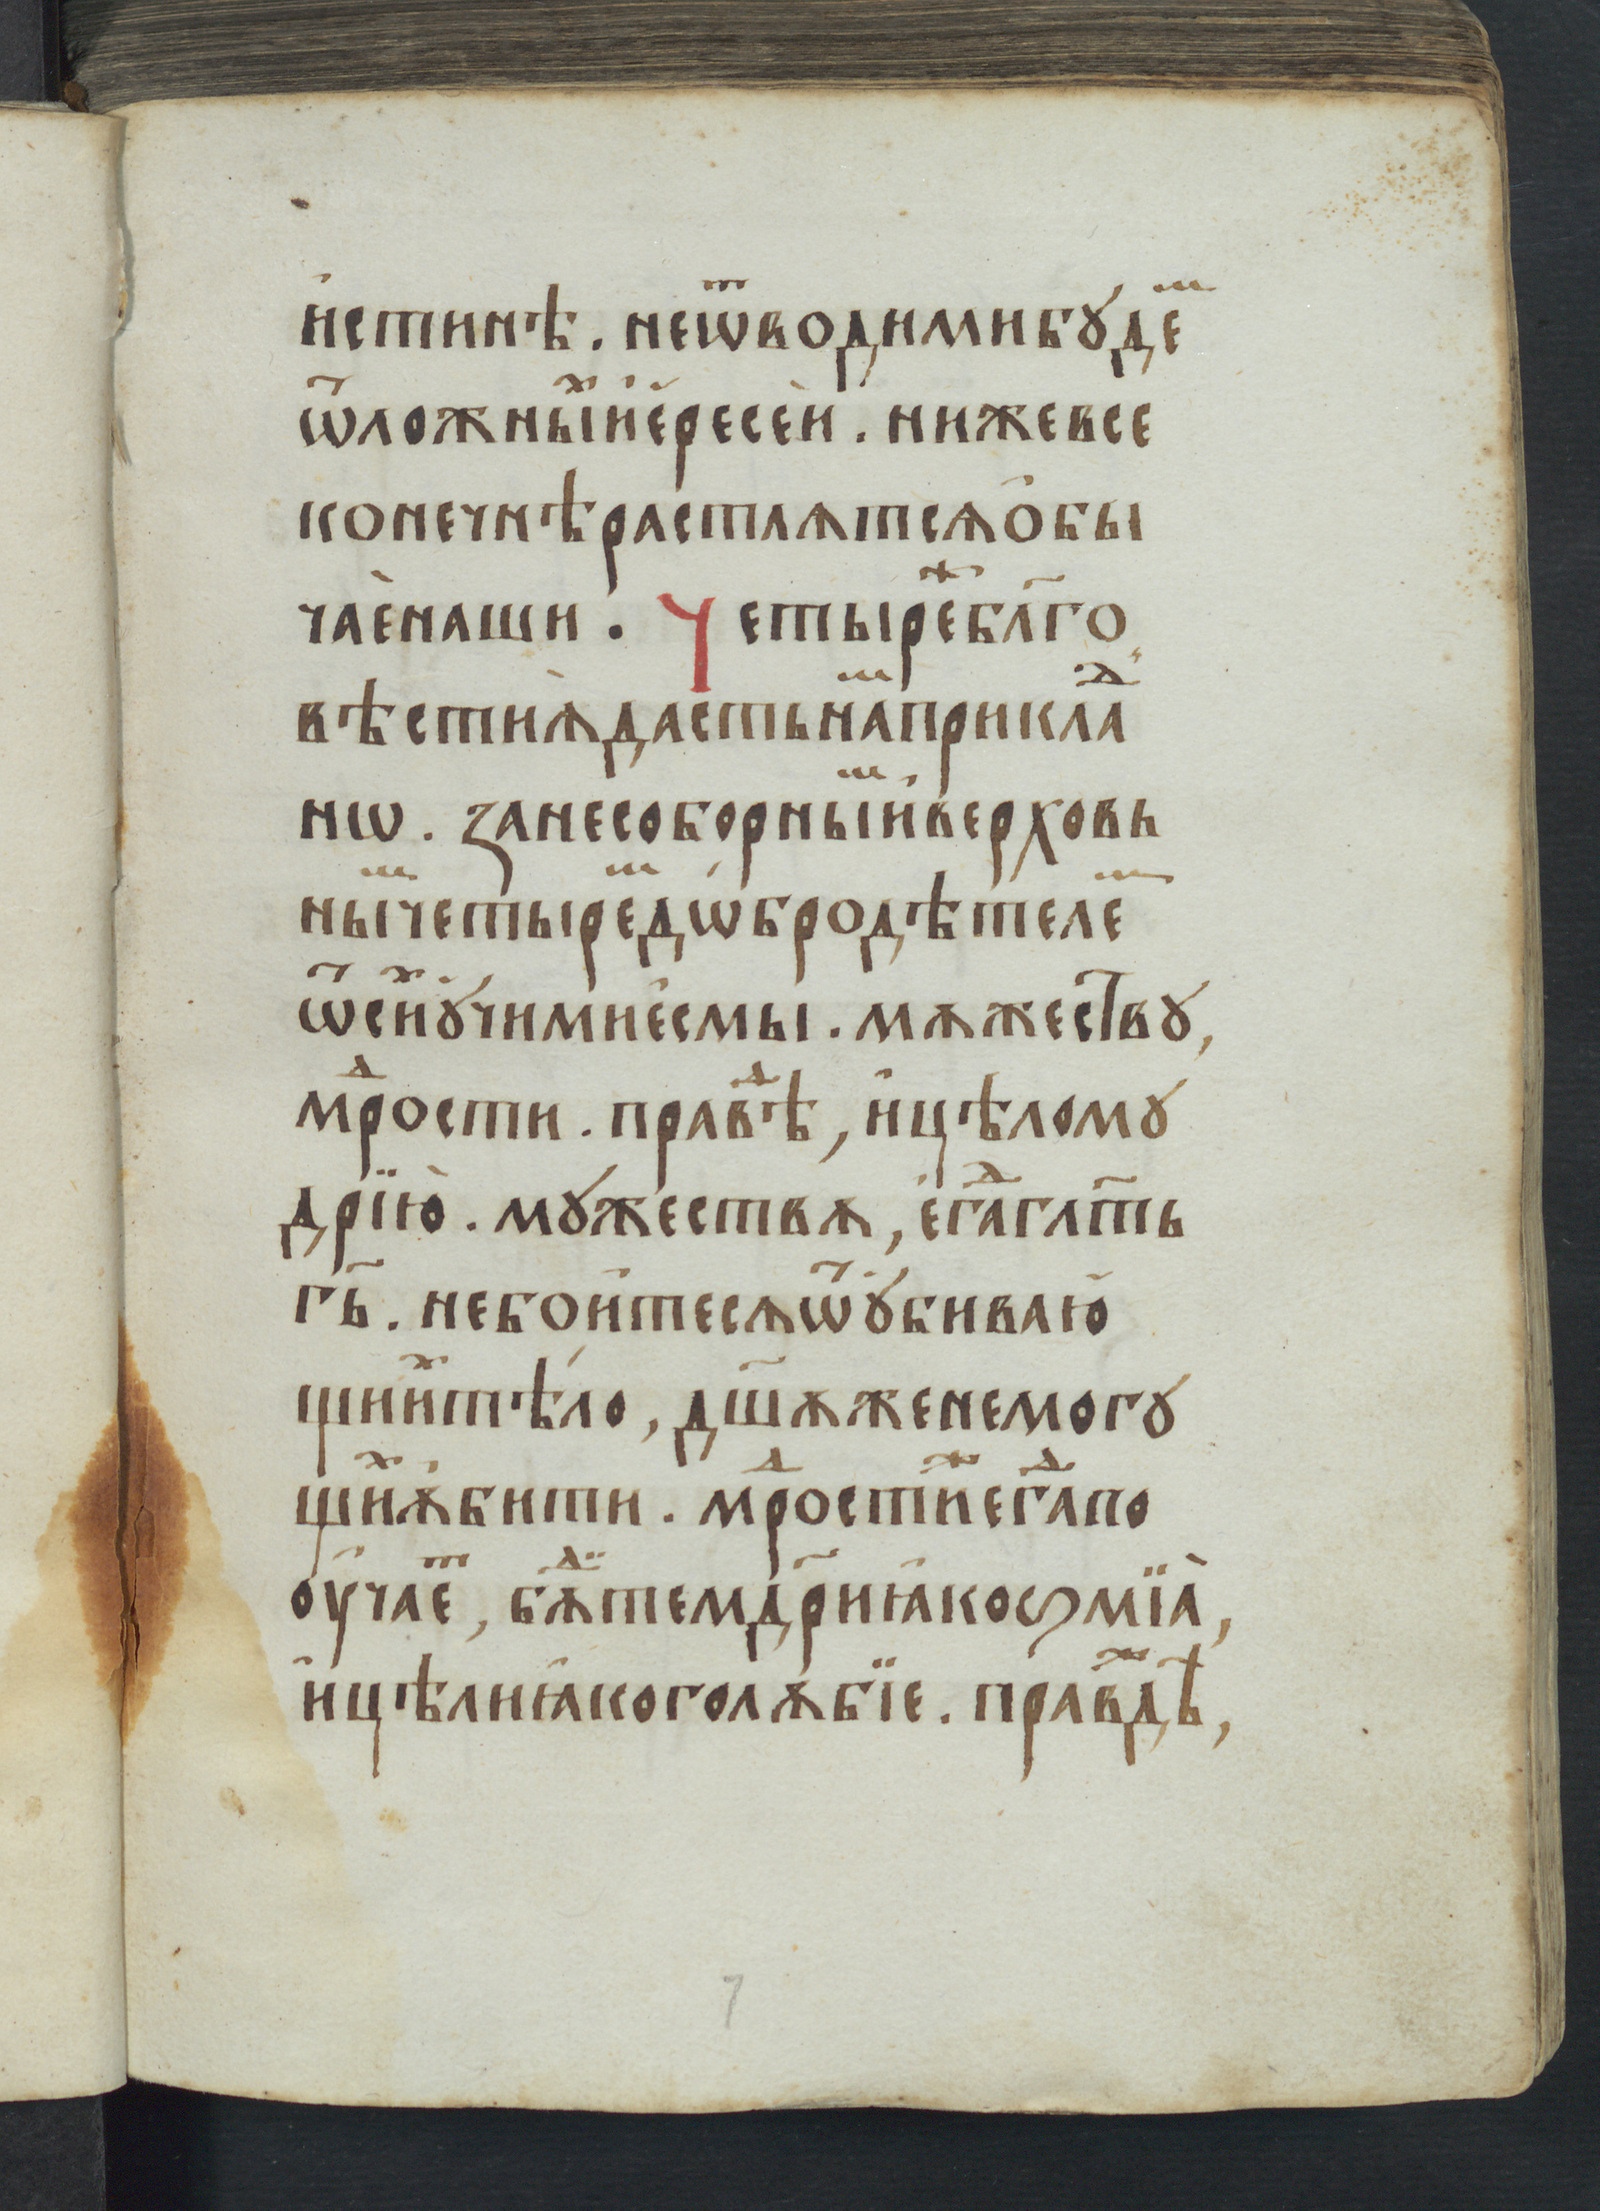 и҆стинѣ. неѿводими бꙋдеⷨ
ѿ ложныⷯ и҆ е҆ресе́и. ниже все
конечнѣ растлѧтсѧ ѻ҆бы
чаѐ наши. Четыреⷤ бл҃го
вѣстиѧ̀ дасть наⷨ прикллаⷣ
нѡ. зане соборныⷨ и҆ верховь
ныⷨ четыреⷨ дѡ́бродѣтелеⷨ
ѿ сиⷯ ᲂу҆чими е҆смы. мѫжествꙋ,
мⷣрости. правⷣѣ, и҆ цѣломꙋ
дрїю̀. мꙋжествѫ, е҆гⷣа гл҃ть
гь҃. не бо́итесѧ ѿ ᲂу҆биваю҆
щииⷯ тѣ́ло, дш҃ѫ же не могꙋ
щиⷯ ѫ҆бити. мⷣростиⷤ егⷣа по
ᲂу҆чаеⷮ, бѫⷣте мдр҃и ꙗ҆ко ѕмїѧ̀,
и҆ цѣли ꙗ҆ко голѫ́бїе. правⷤдѣ,
7